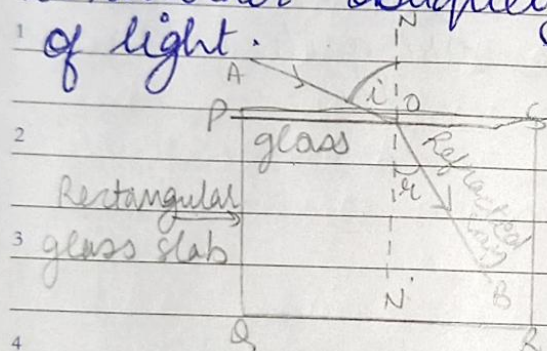 1
of light.
N
A
i
O
P
S
glass
2
Refracted
ray
r
Rectangular
glass slab
3
N'
B
4
Q
R